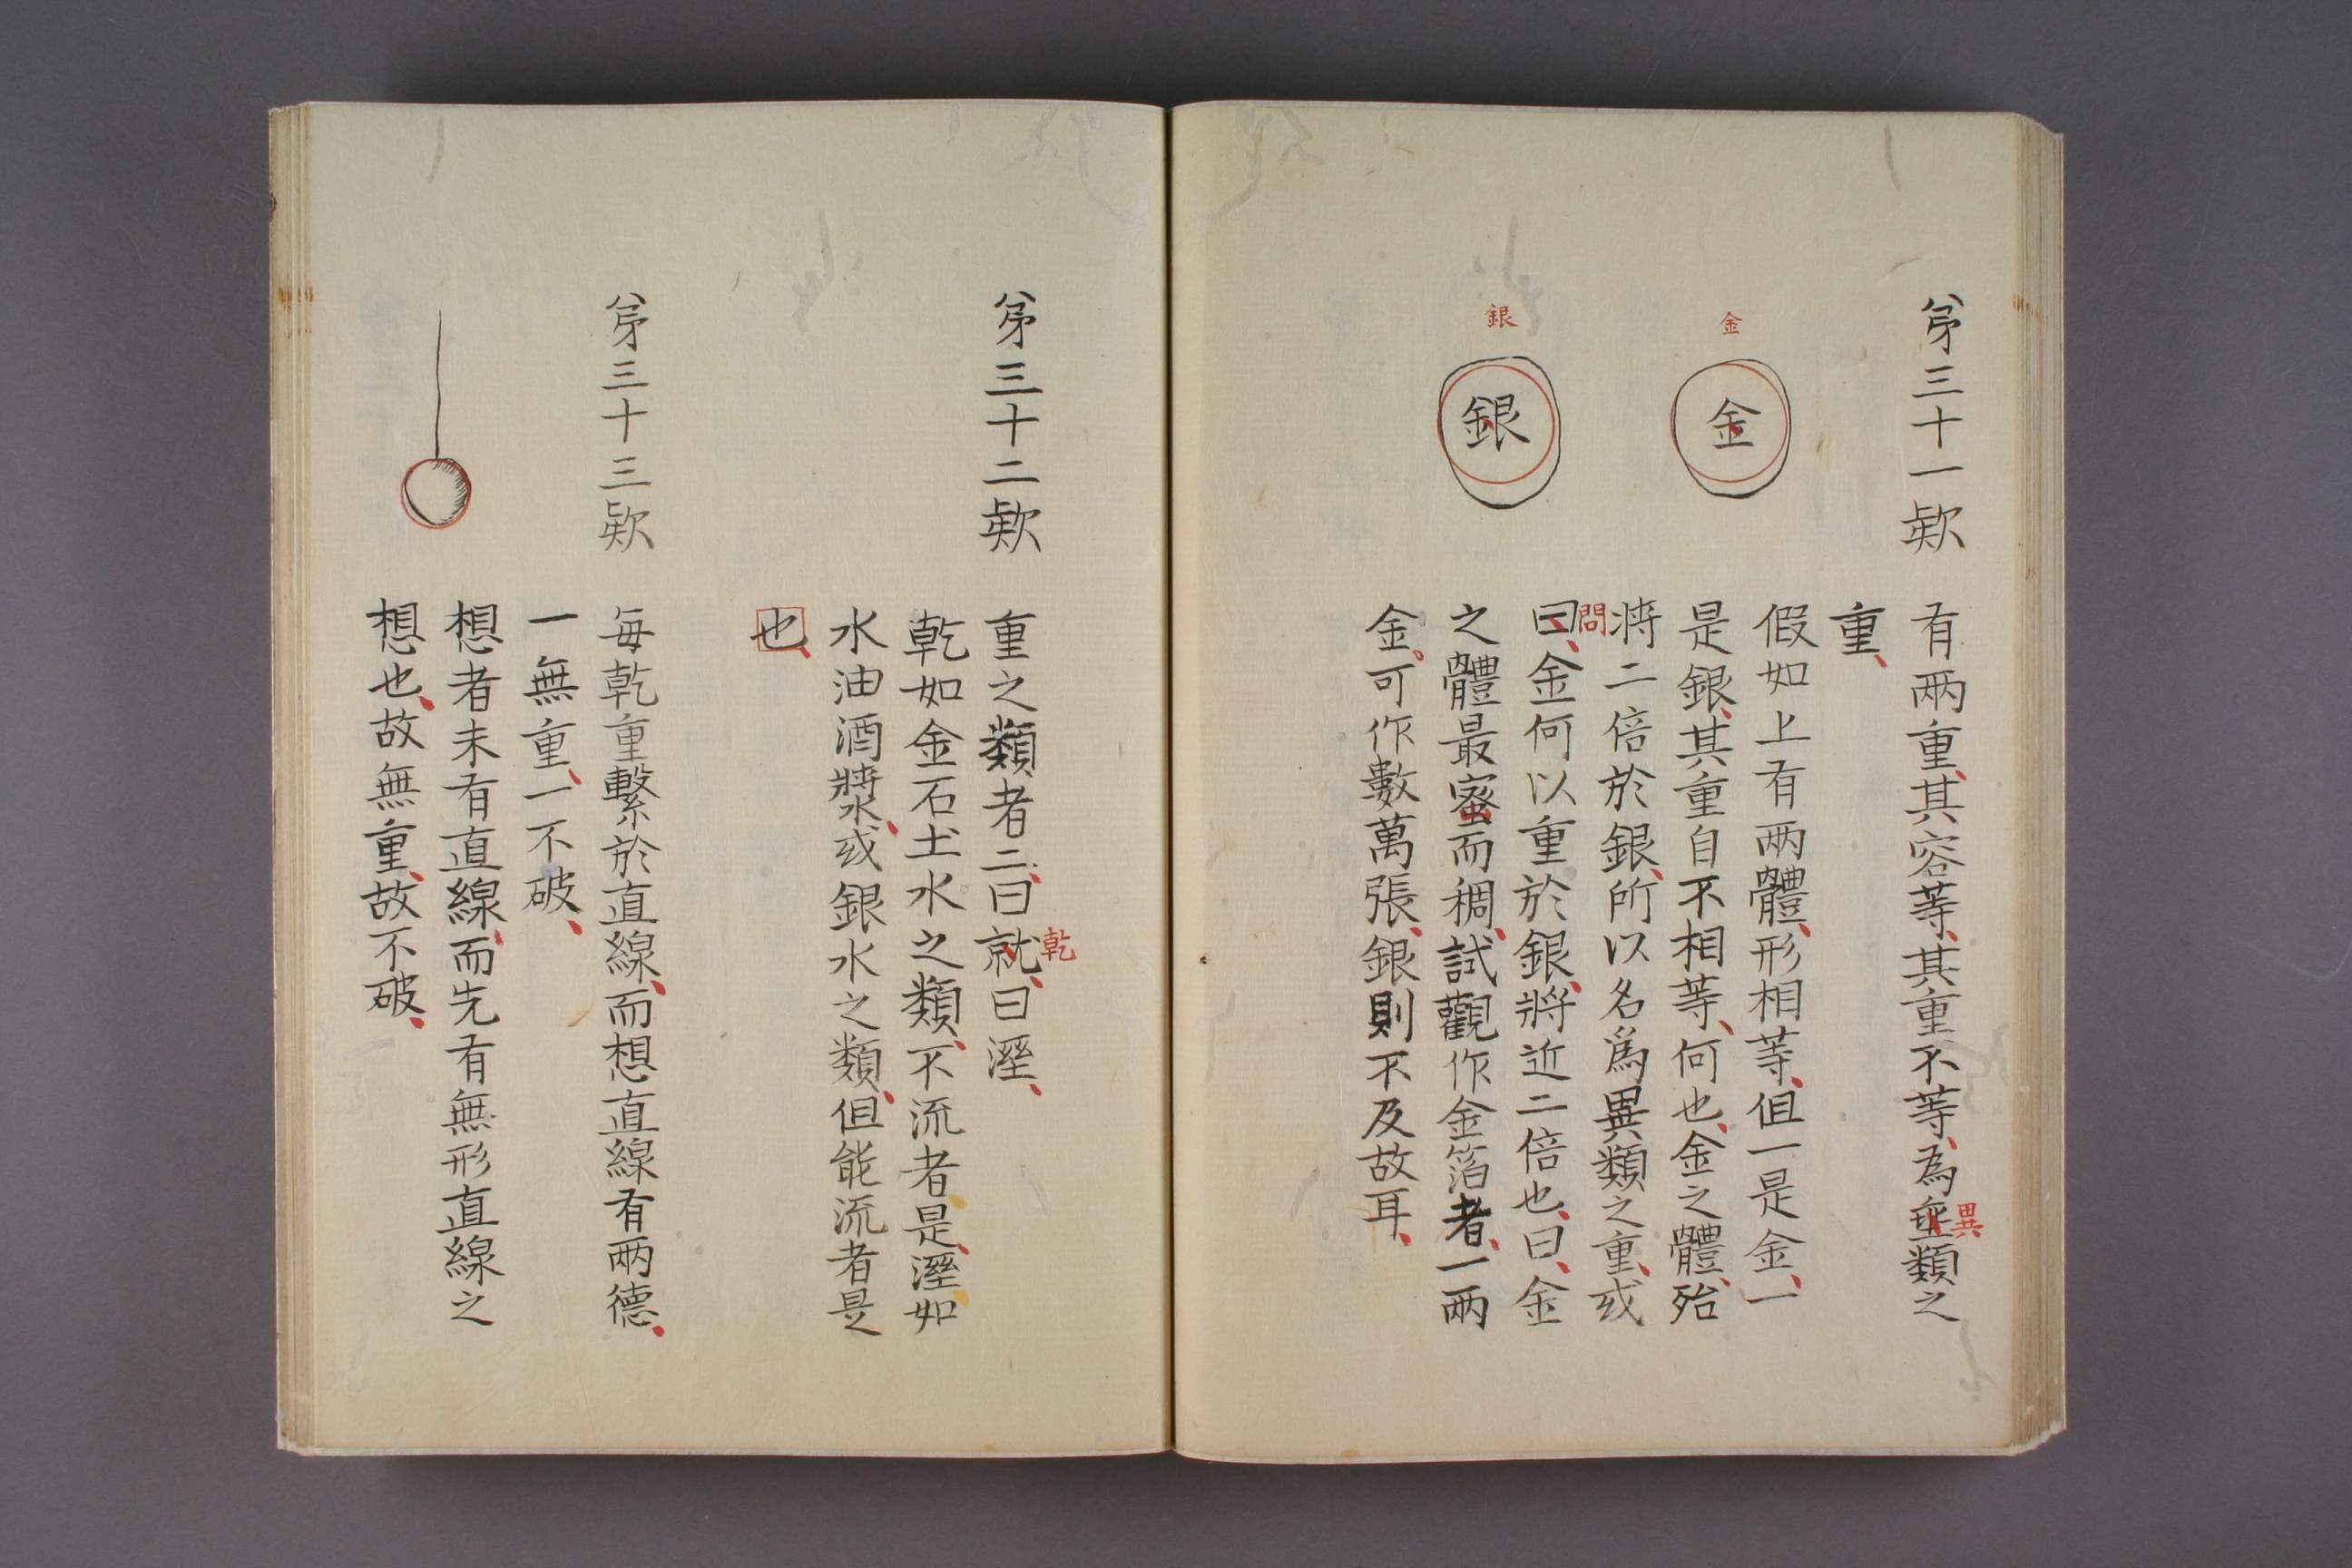 第三十一欵
有兩重其容等其重不等為堊類之
異
重
金
金
假如上有兩體形相等但一是金一
是銀其重自不相等何也金之體殆
將二倍於銀所以名爲異類之重或
問
銀
銀
曰金何以重於銀將近二倍也曰金
之體最密而稠試觀作金箔者一兩
金可作數萬張銀則不及故耳
第三十二欵
重之類者二曰就曰溼
乾
乾如金石土水之類不流者是溼如
水油酒漿或銀水之類但能流者是
也
第三十三欵
每乾重繫於直線而想直線有兩德
一無重一不破
想者未有直線而先有無形直線之
想也故無重故不破